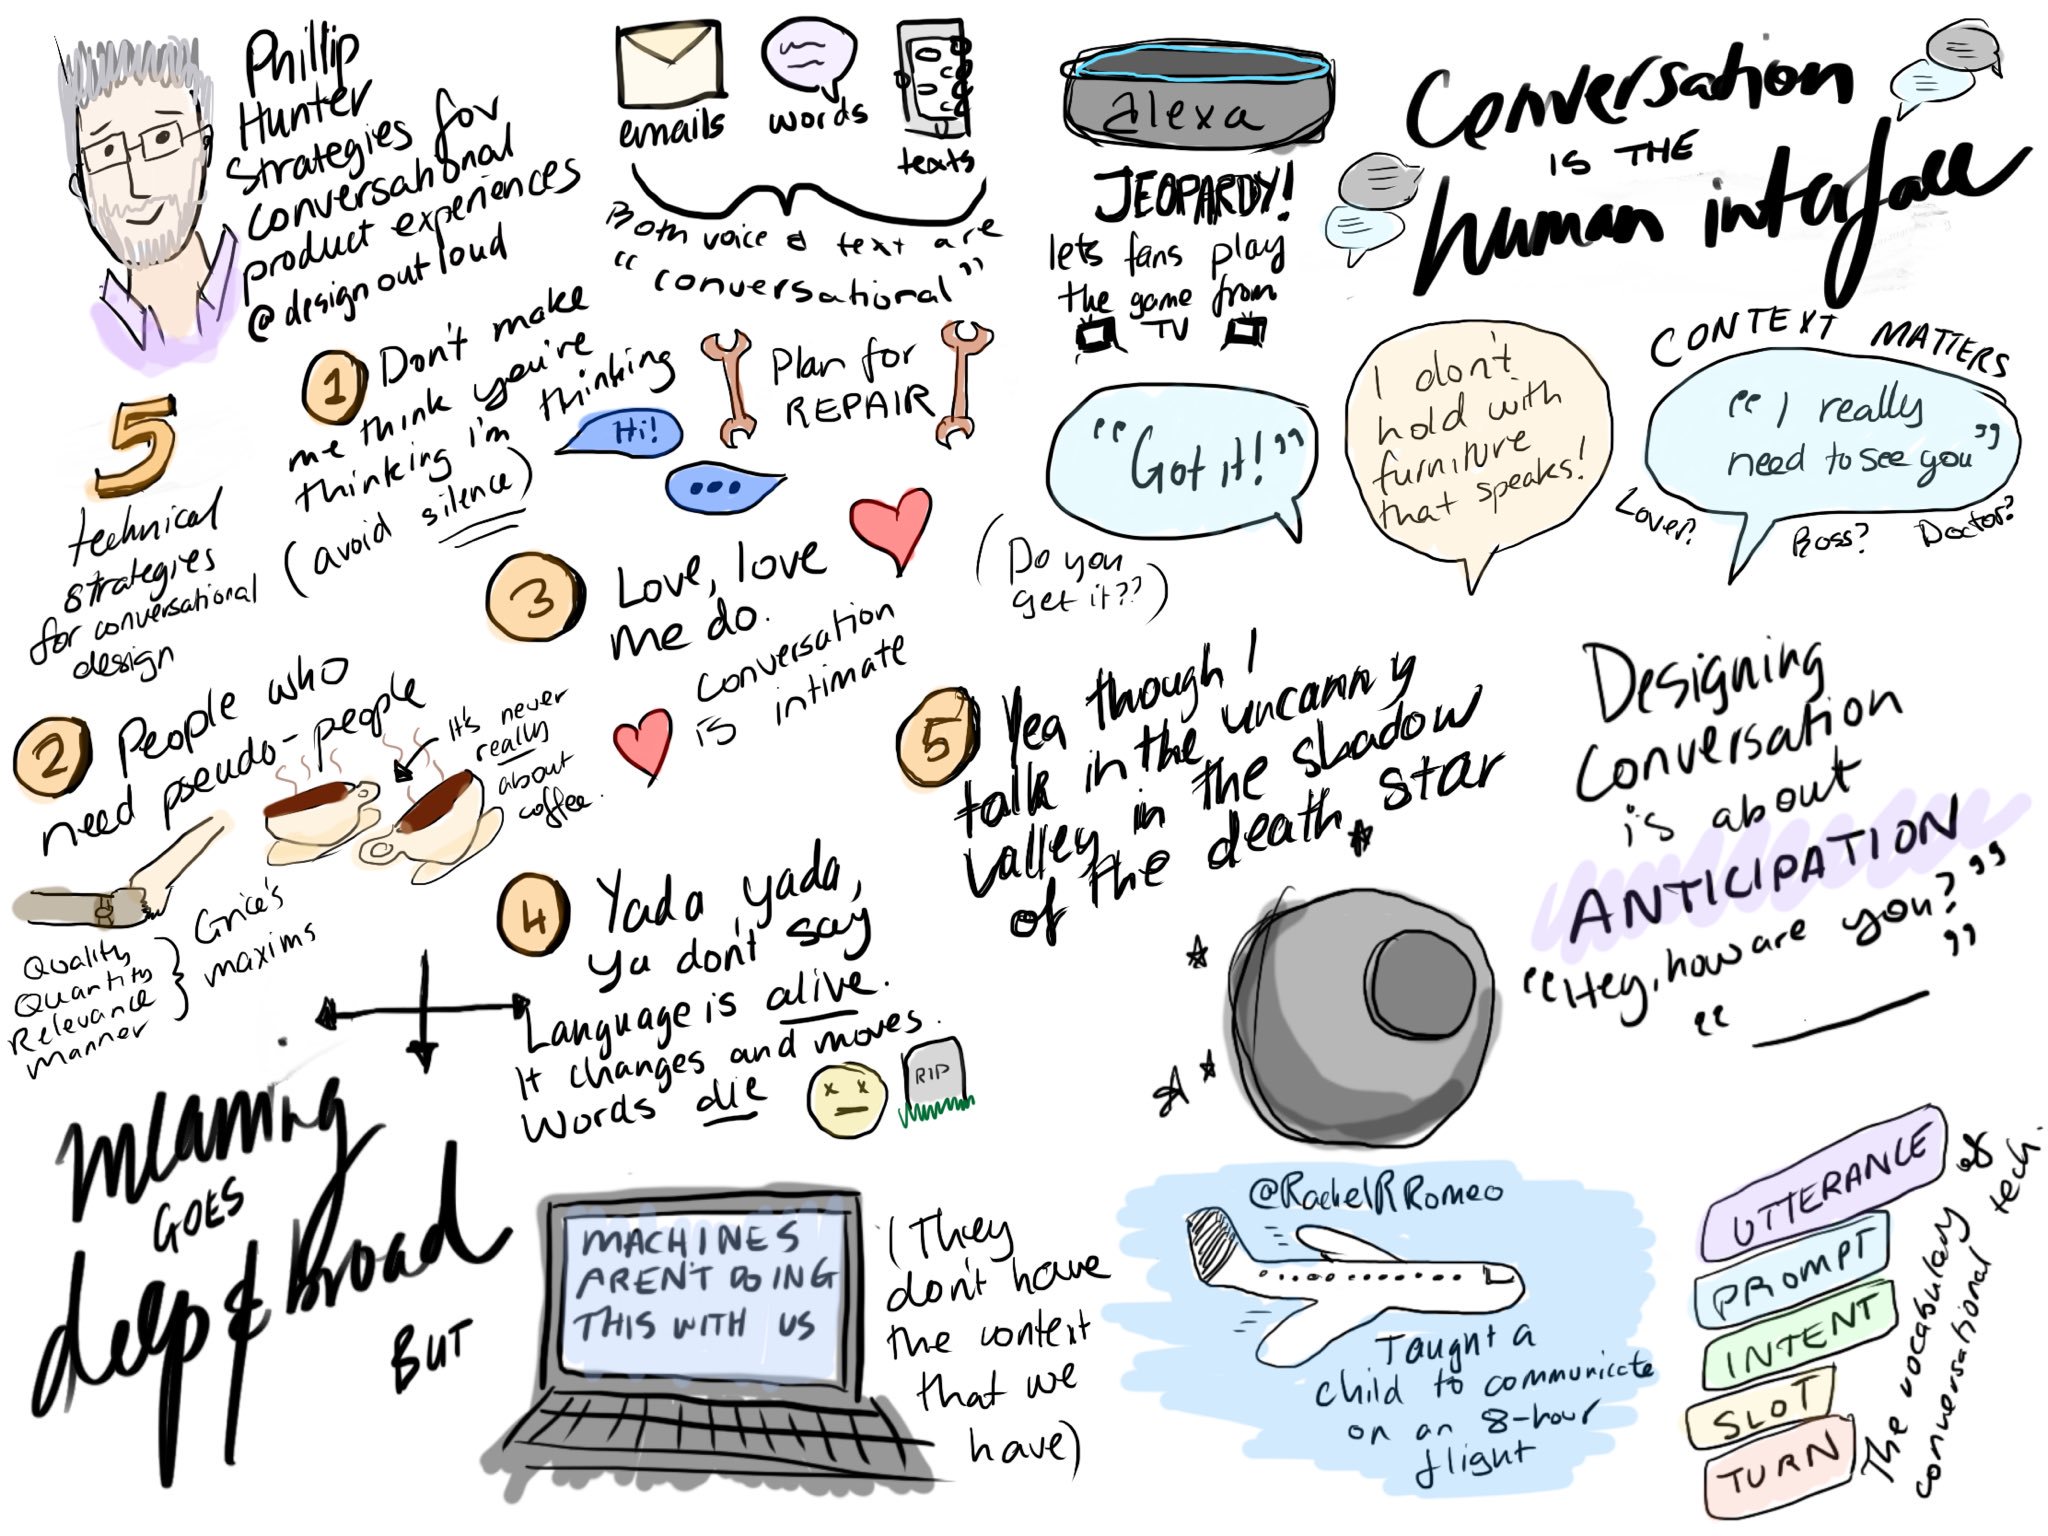 Phillip
Hunter
Strategies for
conversational
product experiences
@designoutloud
emails
words
texts
Both voice & text are
"conversational"
alexa
JEOPARDY!
lets fans play
the game from
TV
Conversation
IS THE
human interface
5
technical
strategies
for conversational
design
1
Don't make
me think you're
thinking I'm thinking
(avoid silence)
Hi!
Plan for
REPAIR
"Got it!"
(Do you
get it??)
I don't
hold with
furniture
that speaks!
CONTEXT MATTERS
"I really
need to see you"
Lover?
Boss?
Doctor?
2
People who
need pseudo-people
It's never
really
about
coffee.
Quality
Quantity
Relevance
Manner
Grice's
maxims
3
Love, love
me do.
Conversation
is intimate
4
Yada, yada,
ya don't say
Language is alive.
It changes and moves.
Words die
RIP
5
Yea though I
talk in the uncanny
valley in the shadow
of the death star
Designing
Conversation
is about
ANTICIPATION
"Hey, how are you?"
" "
Meaning
GOES
deep & broad
BUT
MACHINES
AREN'T DOING
THIS WITH US
(They
don't have
the context
that we
have)
@RachelRRomeo
Taught a
child to communicate
on an 8-hour
flight
UTTERANCE
PROMPT
INTENT
SLOT
TURN
The vocabulary of
conversational tech.